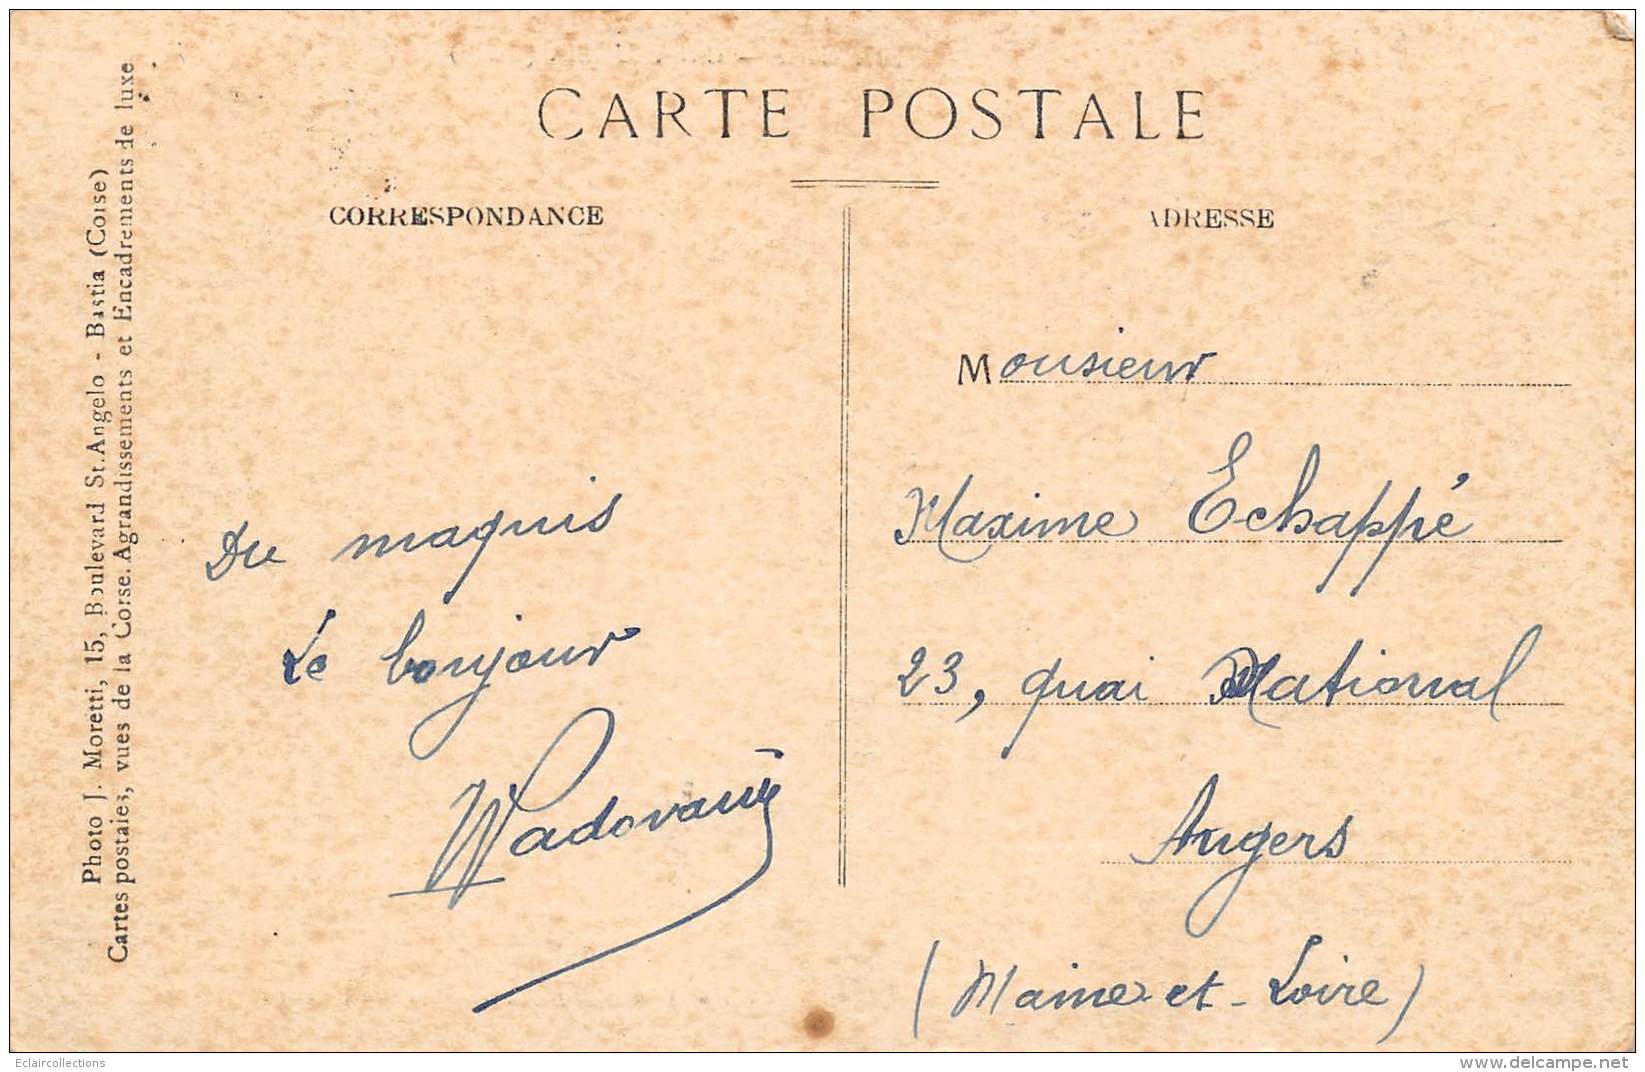 CARTE POSTALE
CORRESPONDANCE
ADRESSE
Photo J. Moretti, 15, Boulevard St. Angelo - Bastia (Corse)
Cartes postales, vues de la Corse. Agrandissements et Encadrements de luxe
Du maquis
Le bonjour
Monsieur
Maxime Echappé
23, quai National
Angers
(Maine-et-Loire)
Eclaircollections
www.delcampe.net